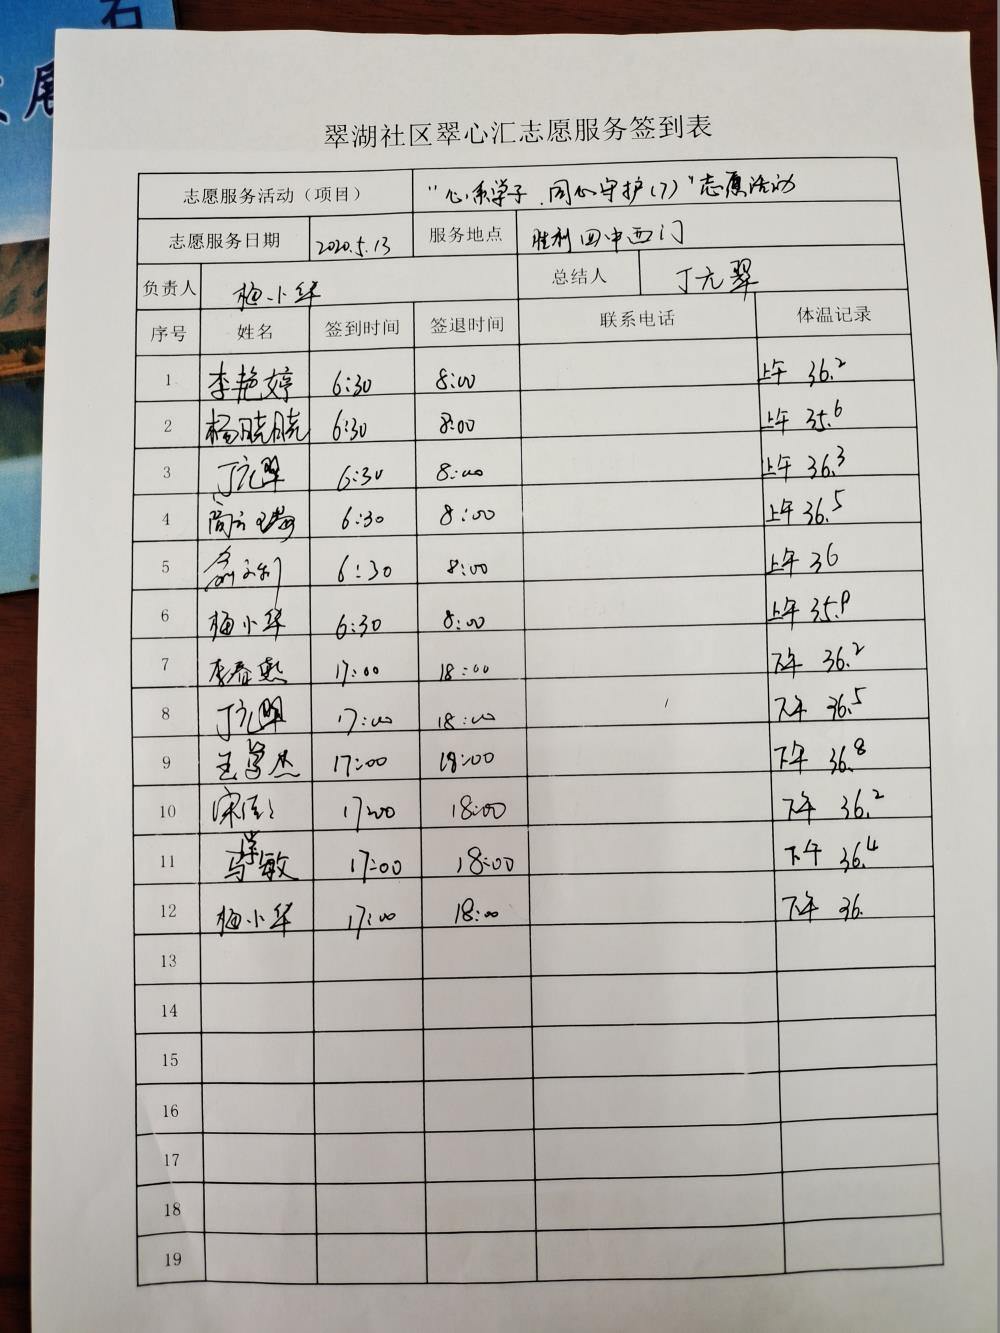 石
展
翠湖社区翠心汇志愿服务签到表
志愿服务活动（项目） "心系学子、同心守护(7)"志愿活动
志愿服务日期 2020.5.13 服务地点 胜利四中西门
负责人 梅小华 总结人 丁元翠
序号 姓名 签到时间 签退时间 联系电话 体温记录
1 李艳婷 6:30 8:00 上午 36.2
2 杨晓晓 6:30 8:00 上午 35.6
3 丁元翠 6:30 8:00 上午 36.3
4 6:30 8:00 上午 36.5
5 6:30 8:00 上午 36
6 梅小华 6:30 8:00 上午 35.9
7 李春燕 17:00 18:00 下午 36.2
8 丁元翠 17:00 18:00 下午 36.5
9 17:00 18:00 下午 36.8
10 17:00 18:00 下午 36.2
11 17:00 18:00 下午 36.4
12 梅小华 17:00 18:00 下午 36.
13
14
15
16
17
18
19